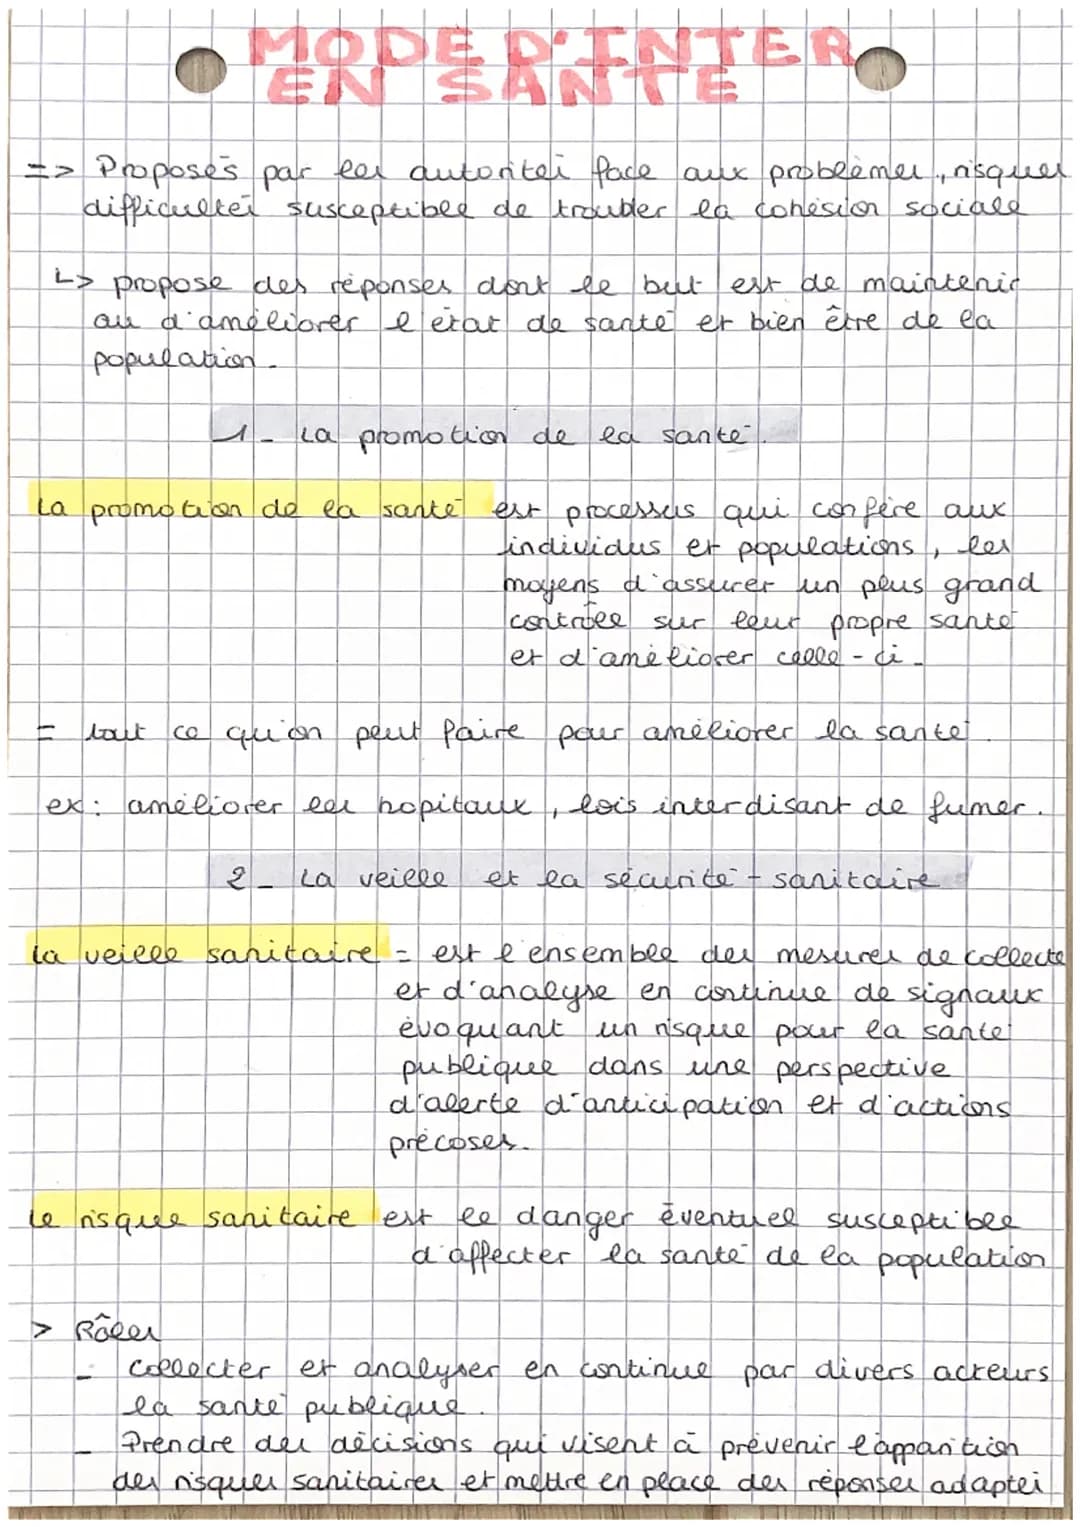 MODE D'INTER
EN SANTE
=> Proposés par les autorités face aux problèmes, risques
difficultés susceptible de troubler la cohésion sociale
↳ propose des réponses dont le but est de maintenir
ou d'améliorer l'état de santé et bien être de la
population.
1_ La promotion de la santé.
La promotion de la santé est processus qui confère aux
individus et populations, les
moyens d'assurer un plus grand
contrôle sur leur propre santé
et d'améliorer celle-ci.
= tout ce qu'on peut faire pour améliorer la santé.
ex: améliorer les hopitaux, lois interdisant de fumer.
2_ La veille et la sécurité-sanitaire
La veille sanitaire = est l'ensemble des mesures de collecte
et d'analyse en continue de signaux
évoquant un risque pour la santé
publique dans une perspective
d'alerte d'anticipation et d'actions
précoses.
Le risque sanitaire est le danger éventuel susceptible
d'affecter la santé de la population
> Rôles
- collecter et analyser en continue par divers acteurs
la santé publique.
- Prendre des décisions qui visent à prévenir l'apparition
des risques sanitaires et mettre en place des réponses adaptés